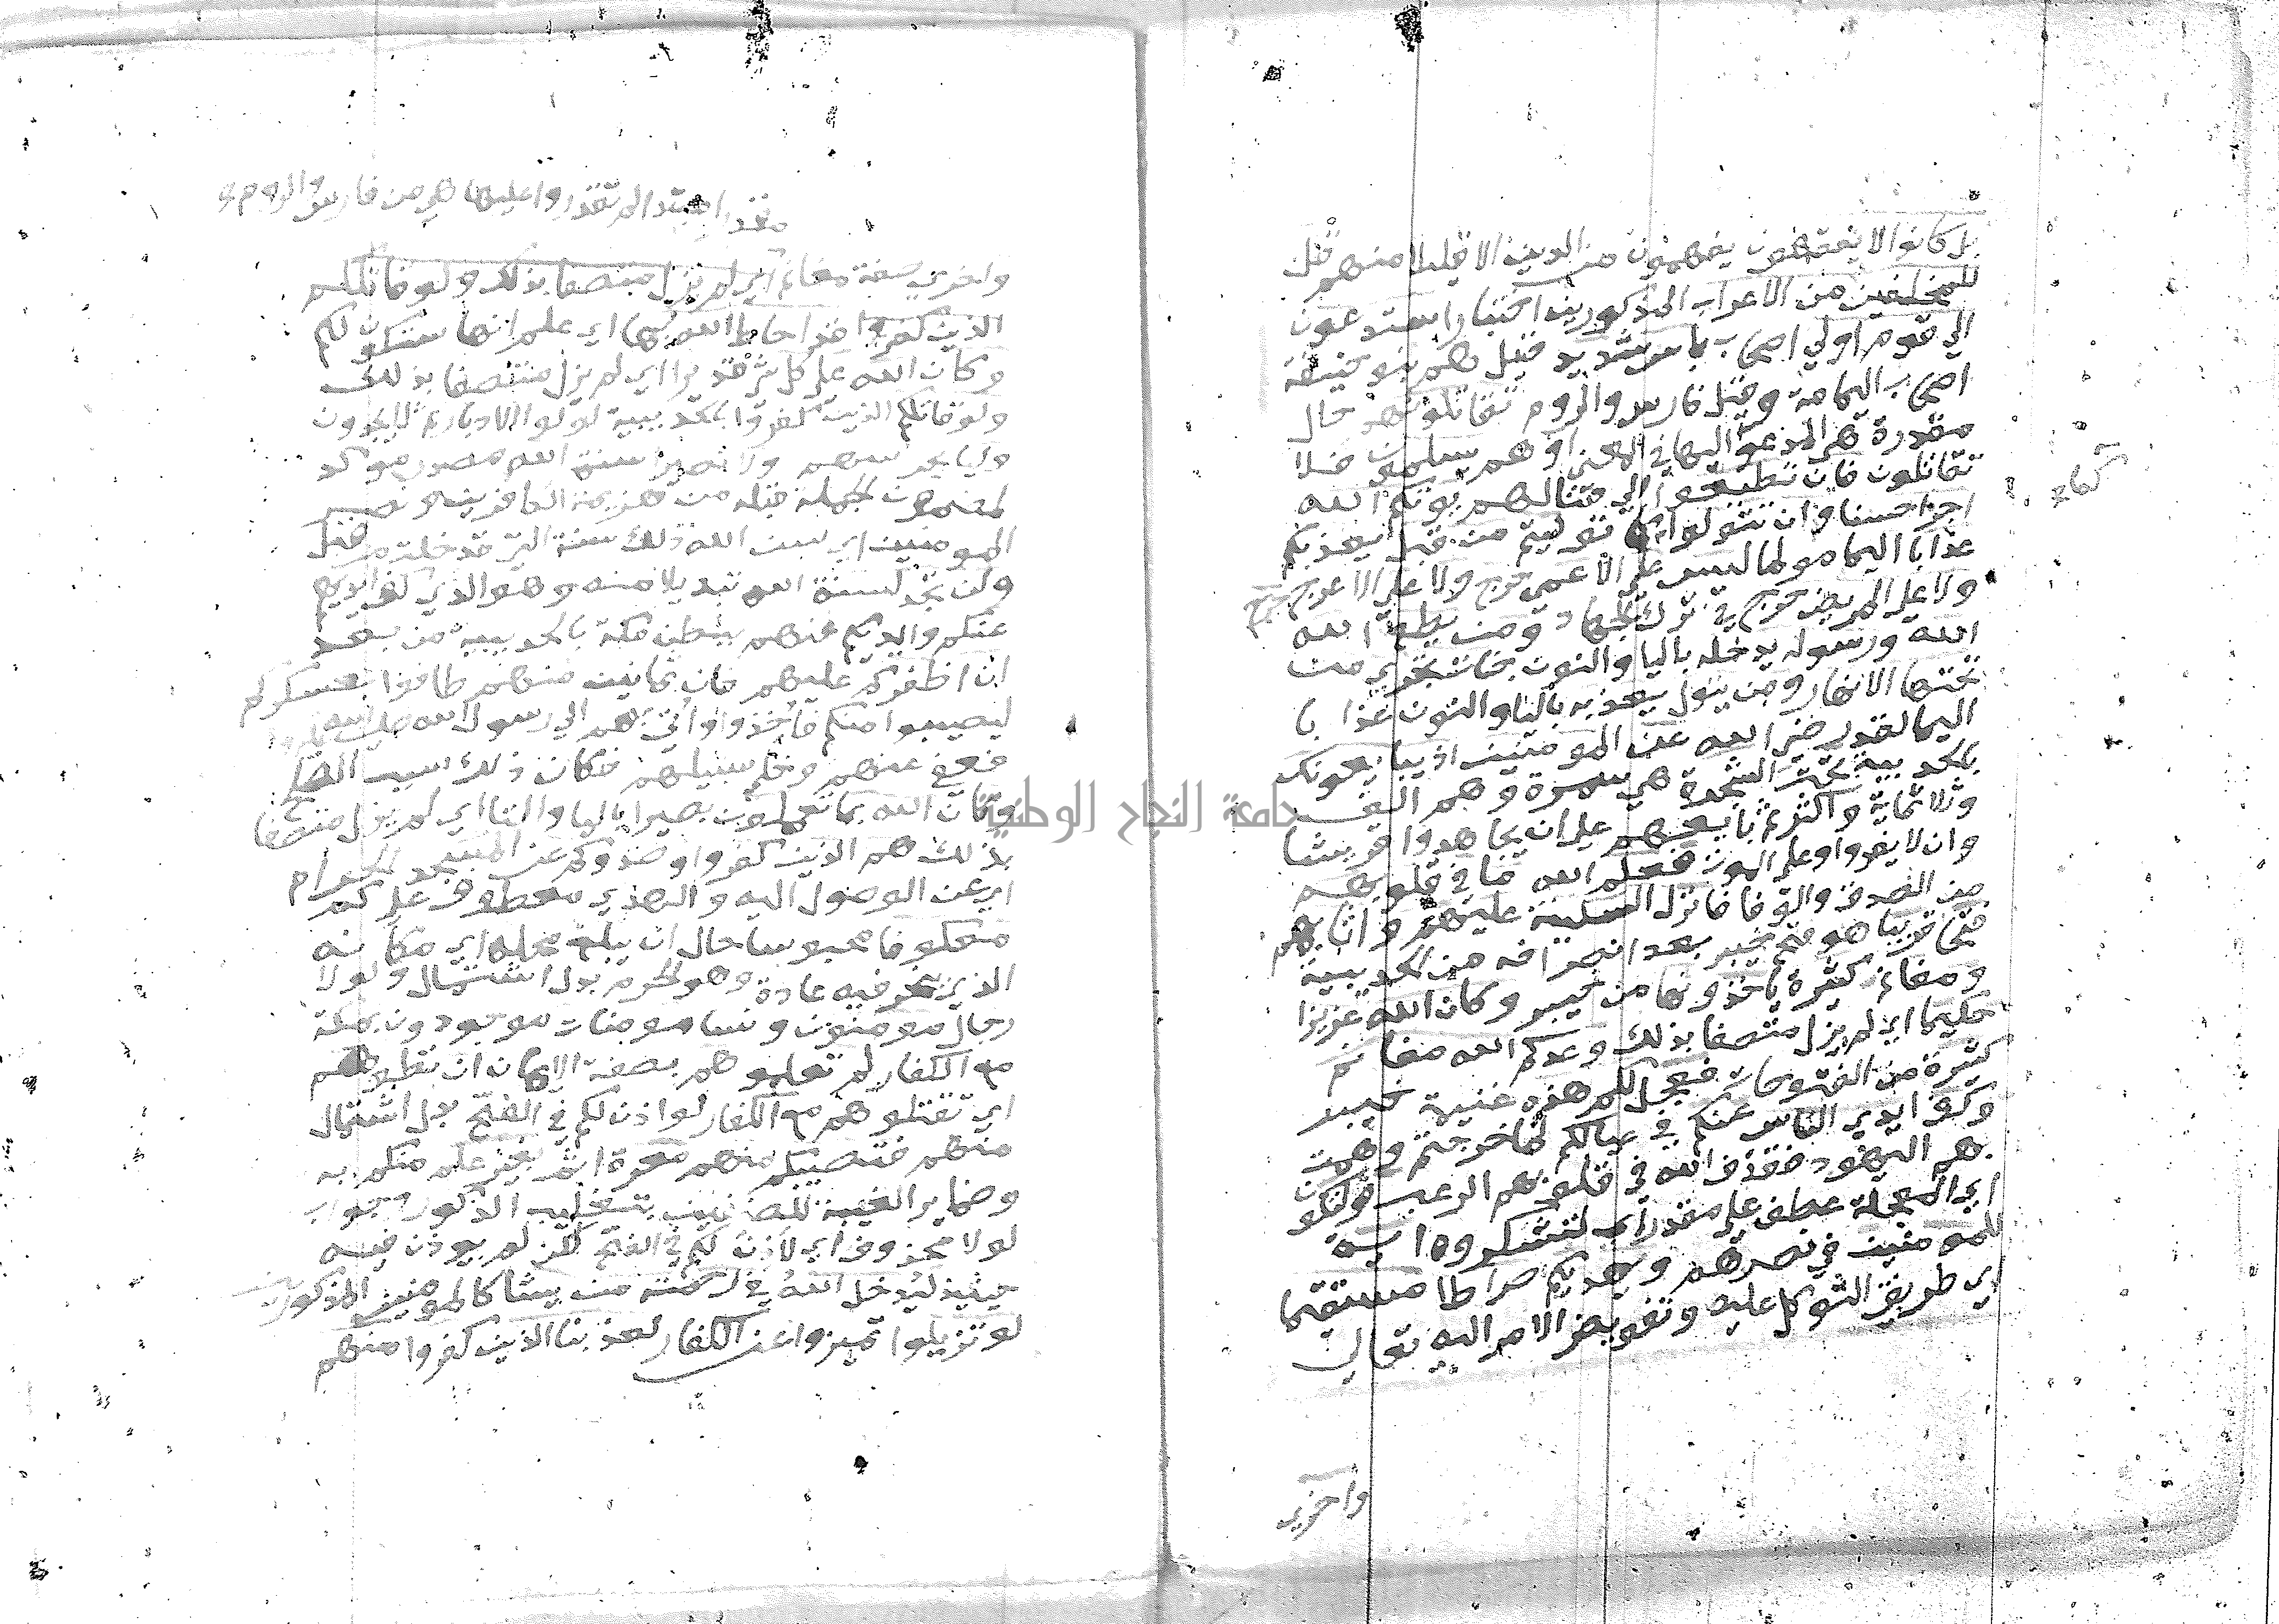 بل كانوا لا يفقهون يفهمون من الدين الا قليلا منهم قل
للمخلفين من الاعراب المذكورين اختبارا ستدعون
الي قوم اولي اصحاب باس شديد قيل هم بنو حنيفة
اصحاب اليمامة وقيل فارس والروم تقاتلونهم حال
مقدرة هي المدعو اليها في المعني او هم يسلمون فلا
تقاتلون فان تطيعوا الي قتالهم يوتكم الله
اجرا حسنا وان تتولوا كما توليتم من قبل يعذبكم
عذابا اليما مولما ليس علي الاعمي حرج ولا علي الاعرج حرج
ولا علي المريض حرج في ترك الجهاد ومن يطع الله
الله ورسوله يدخله باليا والنون جنات تجري من
تحتها الانهار ومن يتول يعذبه باليا والنون عذابا
اليما لقد رضي الله عن المومنين اذ يبايعونك
بالحديبية تحت الشجرة هي سمرة وهم الف
وثلاثماية واكثر ثم بايعهم علي ان يجاهدوا قريشا
وان لا يفروا وعلي الموت فعلم الله ما في قلوبهم
من الصدق والوفا فانزل السكينة عليهم واثابهم
فتحا قريبا هو فتح خيبر بعد انصرافه من الحديبية
ومغانم كثيرة ياخذونها من خيبر وكان الله عزيزا
حكيما اي لم يزل متصفا بذلك وعدكم الله مغانم
كثيرة من الفتوحات فعجل لكم هذه غنيمة خيبر
وكف ايدي الناس عنكم في عيالكم لما خرجتم وهمت
بهم اليهود فقذف الله في قلوبهم الرعب ولتكون
اي المعجلة عطف علي مقدر اي لتشكروه اية
للمومنين في نصرتهم ويهديكم صراطا مستقيما
اي طريق التوكل عليه وتفويض الامر اليه تعالي
واخري
كما
مقدر مبتدا لم تقدروا عليها هي من فارس والروم
واخري صفة مغانم اي لم يزل متصفا بذلك ولو قاتلكم
الذين كفروا قد احاط الله بها اي علم انها ستكون لكم
وكان الله علي كل شي قديرا اي لم يزل متصفا بذلك
ولو قاتلكم الذين كفروا بالحديبية لولوا الادبار ثم لا يجدون
وليا يحرسهم ولا نصيرا سنة الله مصدر موكد
لمضمون الجملة قبله من هزيمة الكافرين ونصر
المومنين اي سن الله ذلك سنة التي قد خلت من قبل
ولن تجد لسنة الله تبديلا منه وهو الذي كف ايديهم
عنكم وايديكم عنهم ببطن مكة بالحديبية من بعد
ان اظفركم عليهم فان ثمانين منهم طافوا بعسكركم
ليصيبوا منكم فاخذوا واتي بهم الي رسول الله صلي الله عليه
فعفي عنهم وخلي سبيلهم فكان ذلك سبب الصلح
وكان الله بما تعملون بصيرا باليا والتا اي لم يزل متصفا
بذلك هم الذين كفروا وصدوكم عن المسجد الحرام
اي عن الوصول اليه والهدي معطوف علي كم
معكوفا محبوسا حال ان يبلغ محله اي مكانه
الذي ينحر فيه عادة وهو الحرم بدل اشتمال ولولا
رجال مومنون ونسا مومنات موجودون بمكة
مع الكفار لم تعلموهم بصفة الايمان ان تطوهم
اي تقتلوهم مع الكفار لو اذن لكم في الفتح بدل اشتمال
منهم فتصيبكم منهم معرة اثم بغير علم منكم به
وضماير الغيبة للصنفين بتغليب الذكور وجواب
لولا محذوف اي لاذن لكم في الفتح لكن لم يوذن فيه
حينيذ ليدخل الله في رحمته من يشا كالمومنين المذكورين
لو تزيلوا تميزوا عن الكفار لعذبنا الذين كفروا منهم
جامعة النجاح الوطنية